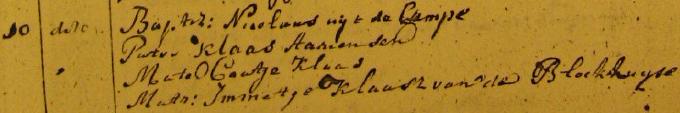 10 dito Baptiz: Nicolaus uijt de Campe
Pater Klaas Hariensen
Mater Caatje Klaas
Matr: Immetge Klaasz van de Blockhuyse